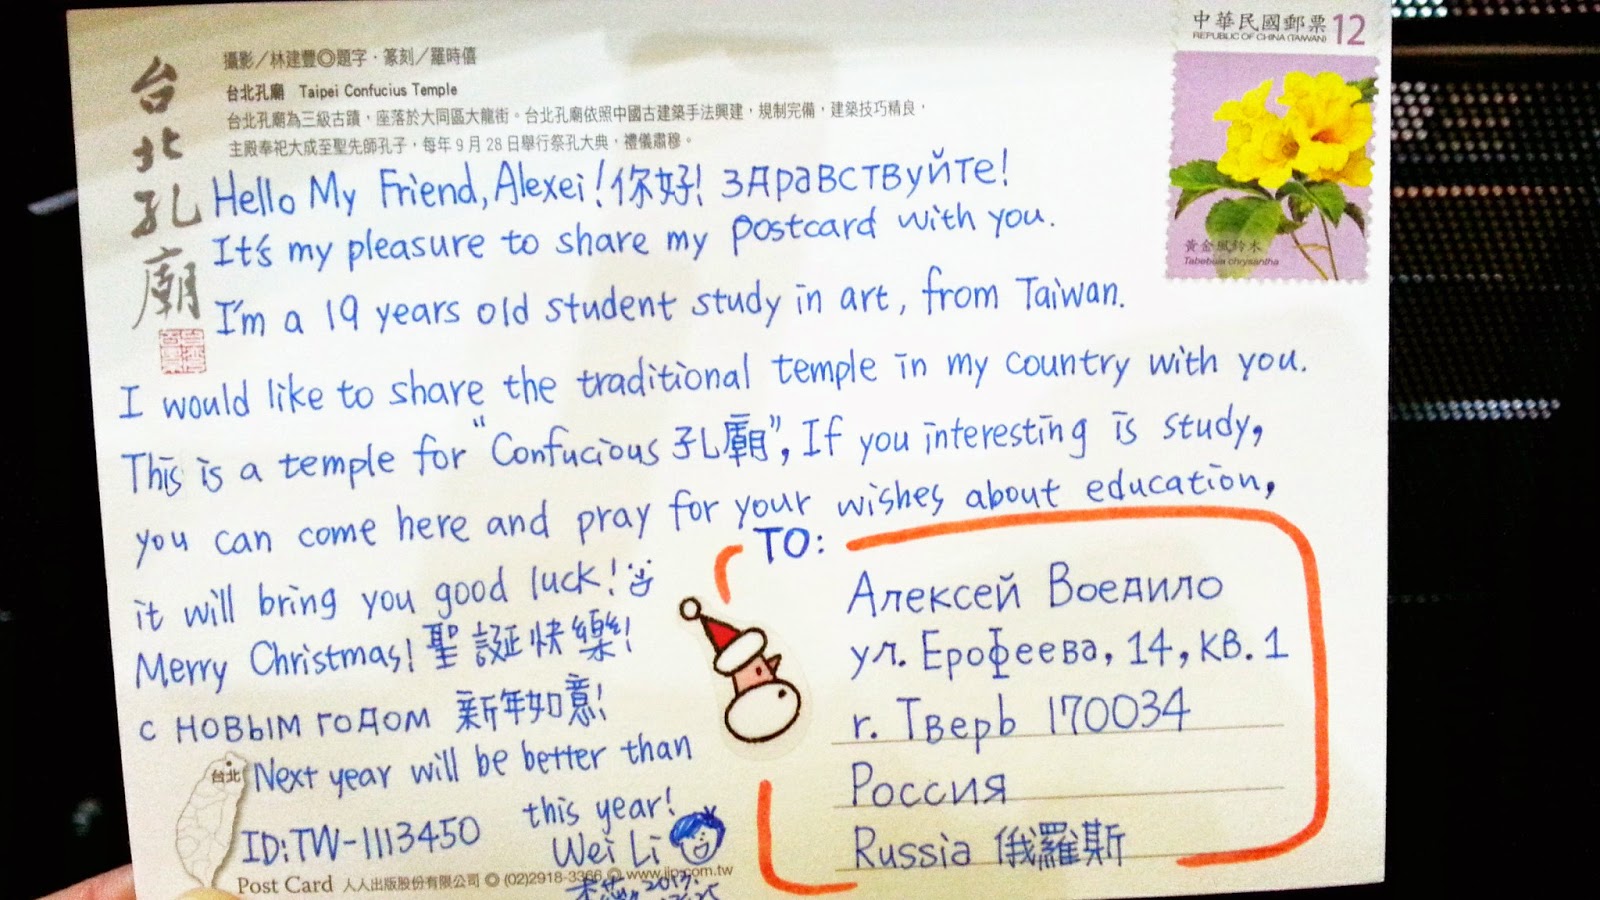 中華民國郵票 12
REPUBLIC OF CHINA (TAIWAN)
黃金風鈴木
Tabebuia chrysantha
台北孔廟
攝影／林建豐◎題字．篆刻／羅時僖
台北孔廟 Taipei Confucius Temple
台北孔廟為三級古蹟，座落於大同區大龍街。台北孔廟依照中國古建築手法興建，規制完備，建築技巧精良，
主殿奉祀大成至聖先師孔子，每年9月28日舉行祭孔大典，禮儀肅穆。
Hello My Friend, Alexei! 你好! здравствуйте!
It's my pleasure to share my postcard with you.
I'm a 19 years old student study in art, from Taiwan.
I would like to share the traditional temple in my country with you.
This is a temple for "Confucious 孔廟", If you interesting is study,
you can come here and pray for your wishes about education,
it will bring you good luck!
Merry Christmas! 聖誕快樂!
с новым годом 新年如意!
Next year will be better than
this year!
Wei Li
2013.
ID:TW-1113450
台北
TO:
Алексей Воедило
ул. Ерофеева, 14, кв. 1
г. Тверь 170034
Россия
Russia 俄羅斯
Post Card 人人出版股份有限公司 ◎ (02)2918-3366 ◎ www.jjp.com.tw